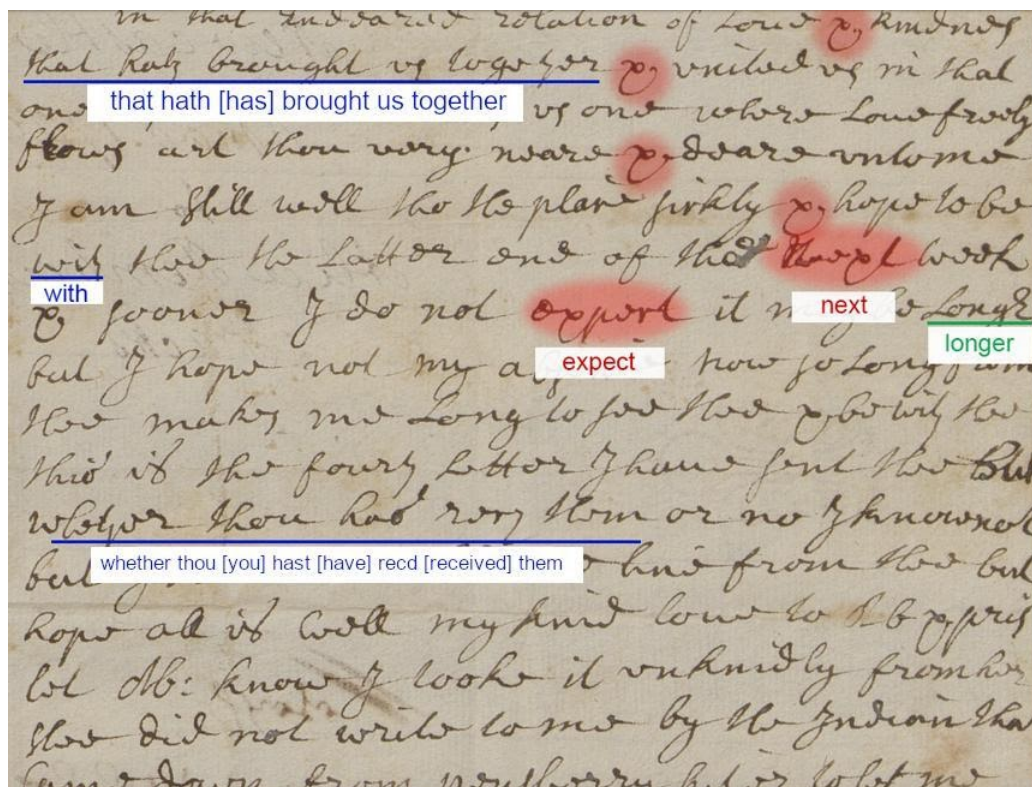 in that endeared relation of Loue & kindnes
that hath brought vs together & vnited vs in that
that hath [has] brought us together
one vs one where Loue freely
flows art thou very neare & deare vnto me
I am still well tho the place sickly & hope to be
with thee the Latter end of the next week
with
next
& sooner I do not expect it be Longr
longer
expect
but I hope not my now so Long from
thee makes me Long to see thee & be with thee
this is the fourth Letter I haue sent thee But
whether thou hast recd them or no I know not
whether thou [you] hast [have] recd [received] them
but line from thee but
hope all is well my kind loue to & pris
let ob: know I tooke it vnkindly from her
shee did not write to me by the Indian tha
came down from to let me